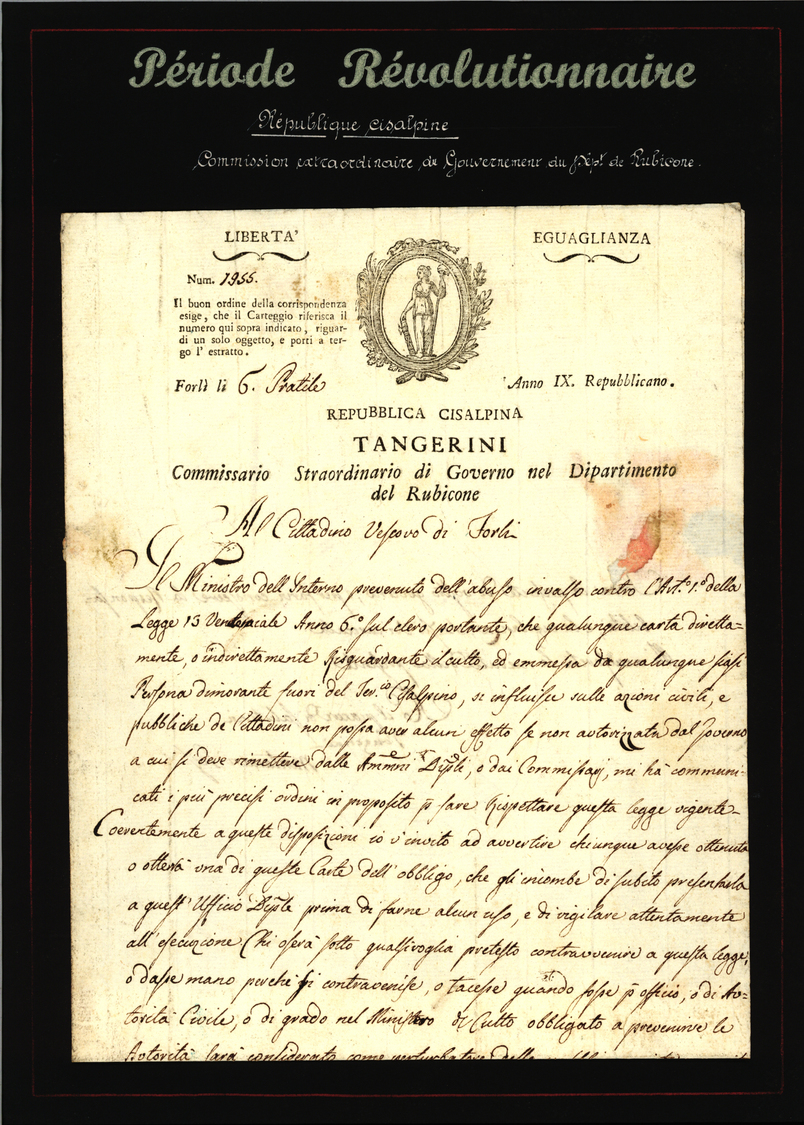 Période Révolutionnaire
République cisalpine
Commission extraordinaire de Gouvernement du Dépt. de Rubicone.
LIBERTA'
EGUAGLIANZA
Num. 1955.
Il buon ordine della corrispondenza
esige, che il Carteggio riferisca il
numero qui sopra indicato, riguar-
di un solo oggetto, e porti a ter-
go l' estratto.
Forlì lì 6. Pratile
Anno IX. Repubblicano.
REPUBBLICA CISALPINA
TANGERINI
Commissario Straordinario di Governo nel Dipartimento
del Rubicone
Al Cittadino Vescovo di Forlì
Il Ministro dell'Interno prevenuto dell'abuso invalso contro l'Art.o 1.o della
Legge 13 Vendemiale Anno 6.o sul clero portante, che qualunque carta diretta-
mente, o indirettamente Risguardante il culto, ed emmessa da qualunque siasi
Persona dimorante fuori del Ter.co Cisalpino, si influisce sulle azioni civili, e
pubbliche de Cittadini non possa aver alcun effetto se non autorizzata dal Governo
a cui si deve rimettere dalle Ammni Dipli, o dai Commissarj, mi hà communi-
cati i più precisi ordini in proposito p fare Rispettare questa legge vigente-
Coerentemente a queste disposizioni io v'invito ad avvertire chiunque avesse ottenuta
o otterrà una di queste Carte dell'obbligo, che gli incombe di subito presentarla
a quest'Ufficio Diple prima di farne alcun uso, e di vigilare attentamente
all'esecuzione Chi oserà sotto qualsivoglia pretesto contravvenire a questa legge,
o dasse mano perchè si contravenisse, o tacesse quando fosse p officio, o di Au-
torità Civile, o di grado nel Ministero di Culto obbligato a prevenirne le
Autorità sarà considerato come perturbatore della